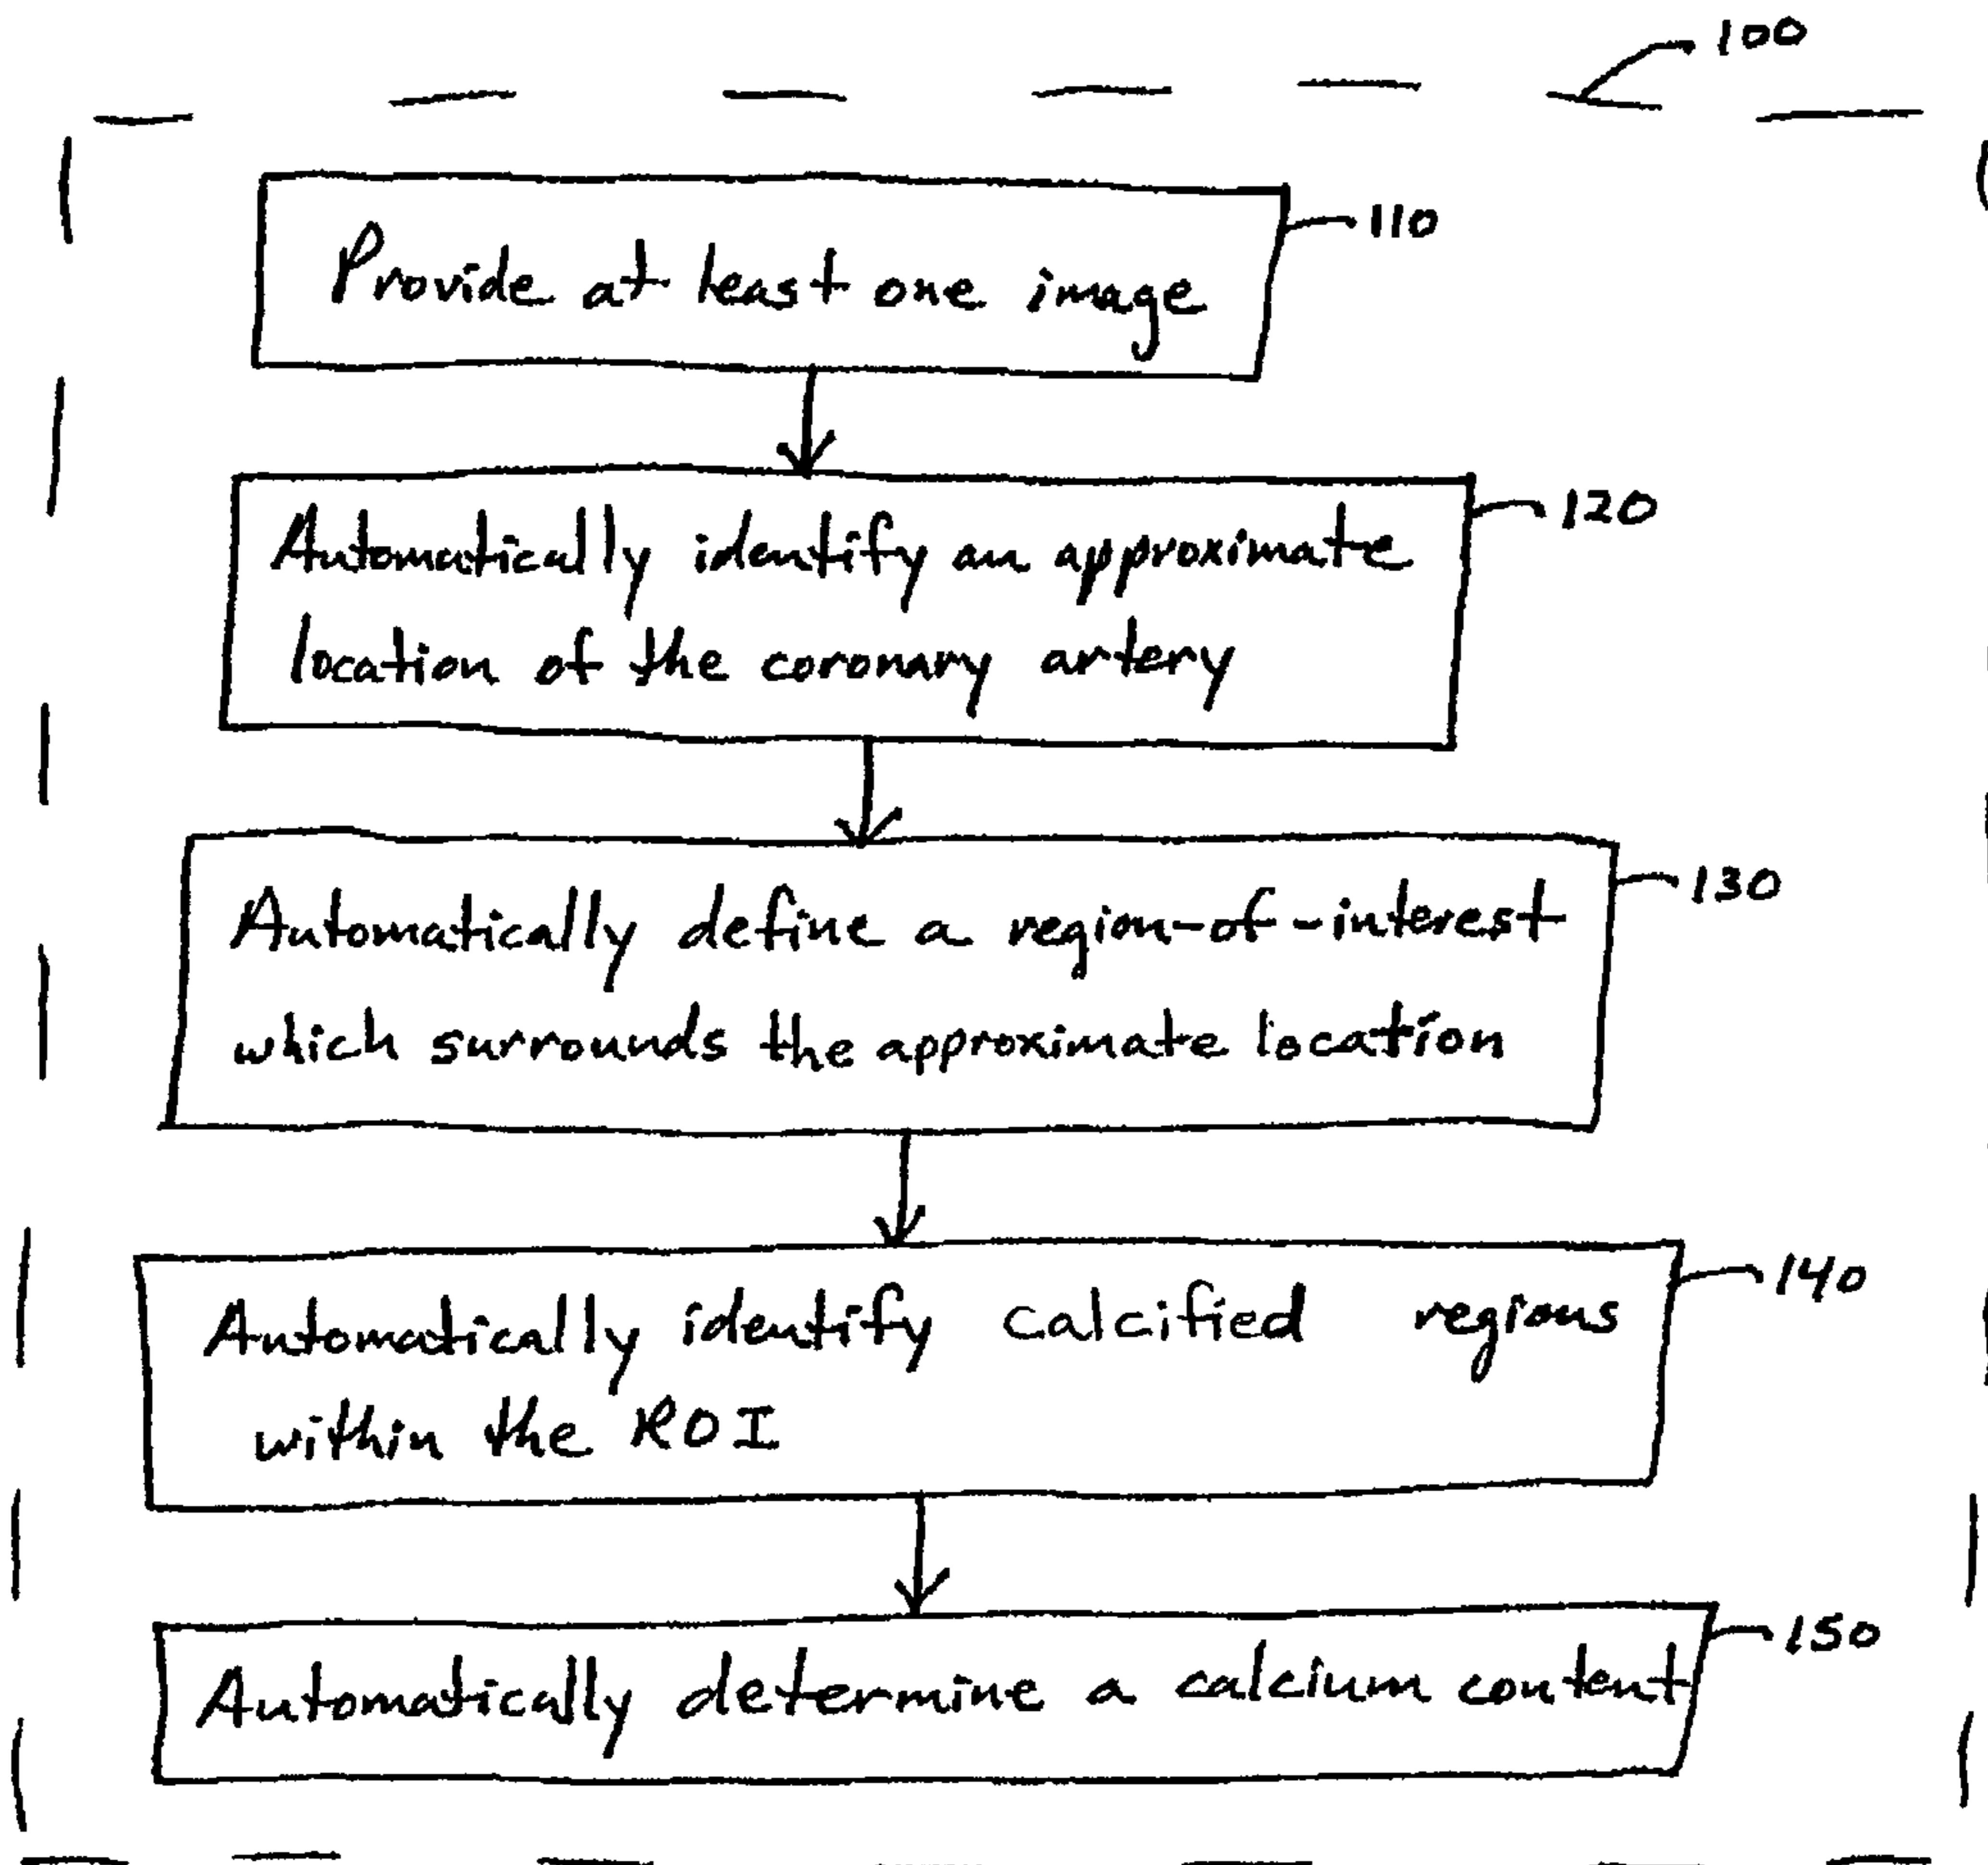 100
Provide at least one image
110
Automatically identify an approximate
location of the coronary artery
120
Automatically define a region-of-interest
which surrounds the approximate location
130
Automatically identify calcified regions
within the ROI
140
Automatically determine a calcium content
150